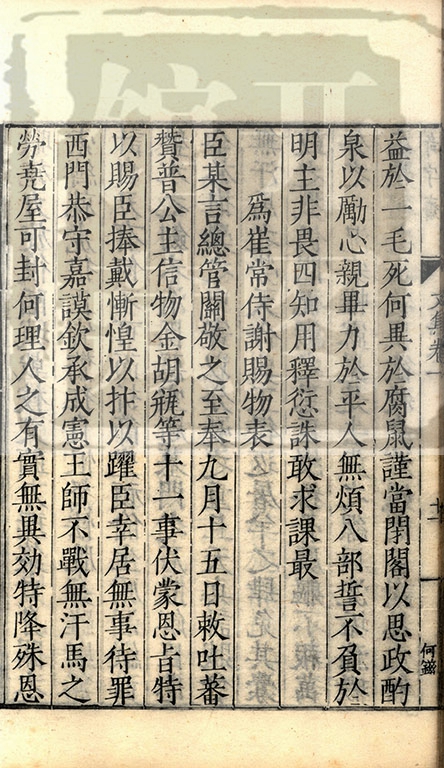 益於一毛死何異於腐鼠謹當閉閣以思政酌
泉以勵心親畢力於平人無煩八部誓不負於
明主非畏四知用釋愆誅敢求課最
為崔常侍謝賜物表
臣某言總管關敬之至奉九月十五日敕吐蕃
贊普公主信物金胡瓶等十一事伏蒙恩旨特
以賜臣捧戴慚惶以抃以躍臣幸居無事待罪
西門恭守嘉謨欽承成憲王師不戰無汗馬之
勞堯屋可封何理人之有實無異効特降殊恩